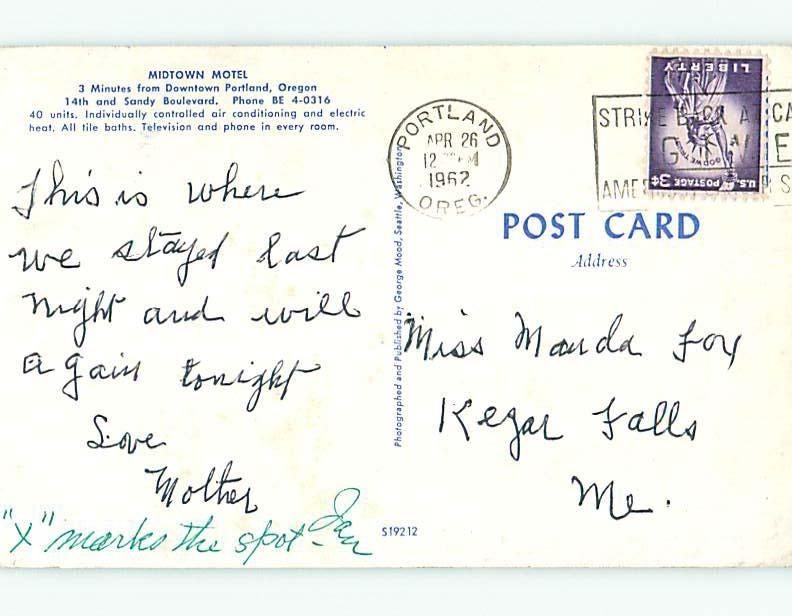 MIDTOWN MOTEL
3 Minutes from Downtown Portland, Oregon
14th and Sandy Boulevard. Phone BE 4-0316
40 units. Individually controlled air conditioning and electric
heat. All tile baths. Television and phone in every room.
This is where
we stayed last
night and will
again tonight
Love
Mother
"X" marks the spot - Jan
Photographed and Published by George Mood, Seattle, Washington
S19212
PORTLAND
APR 26
12 M
1962
OREG.
LIBERTY
U.S. POSTAGE 3¢
STRIKE BACK A CA
POST CARD
Address
Miss Manda Fox
Kezar Falls
Me.